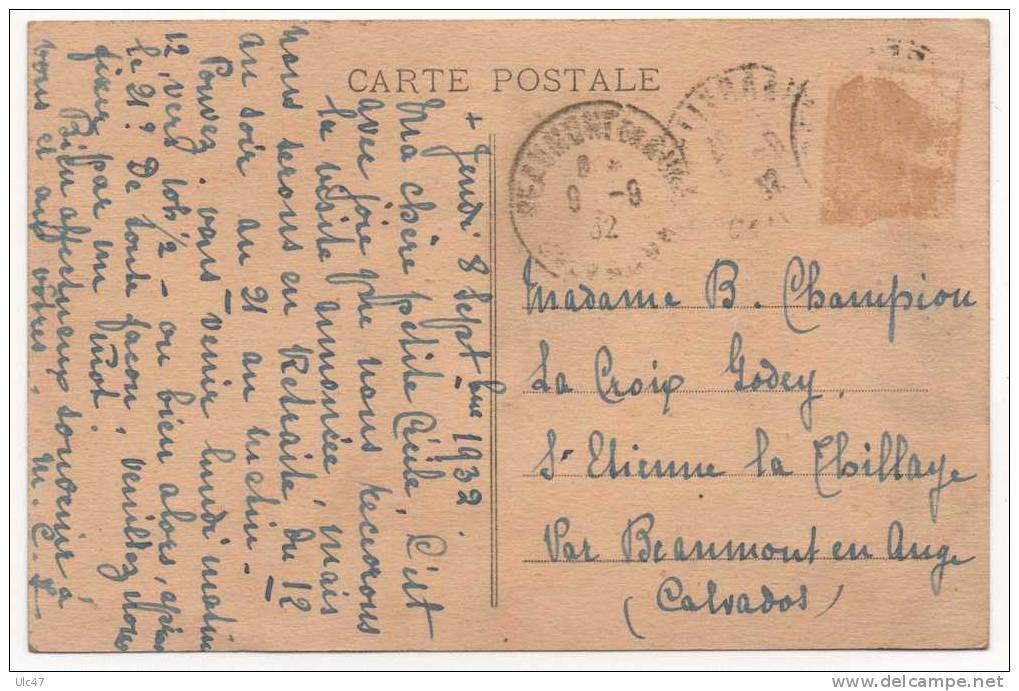 CARTE POSTALE
+ Jeudi 8 Septbre 1932.
Ma chère petite Cécile, C'est
avec joie que nous recevrons
la visite annoncée, mais
nous serons en Retraite du 12
au soir au 21 au matin.
Pouvez-vous venir lundi matin
12, vers 10h1/2 - ou bien alors, après
le 21? De toute façon, veuillez
fixer par un mot.
Bien affectueux souvenir à
vous et aux vôtres. M. C.
BEAUMONT EN AUGE
9 - 9
32
Madame B. Champion
La Croix Godey
St Etienne la Thillaye
Par Beaumont en Auge
(Calvados)
Ulc47
delcampe.net